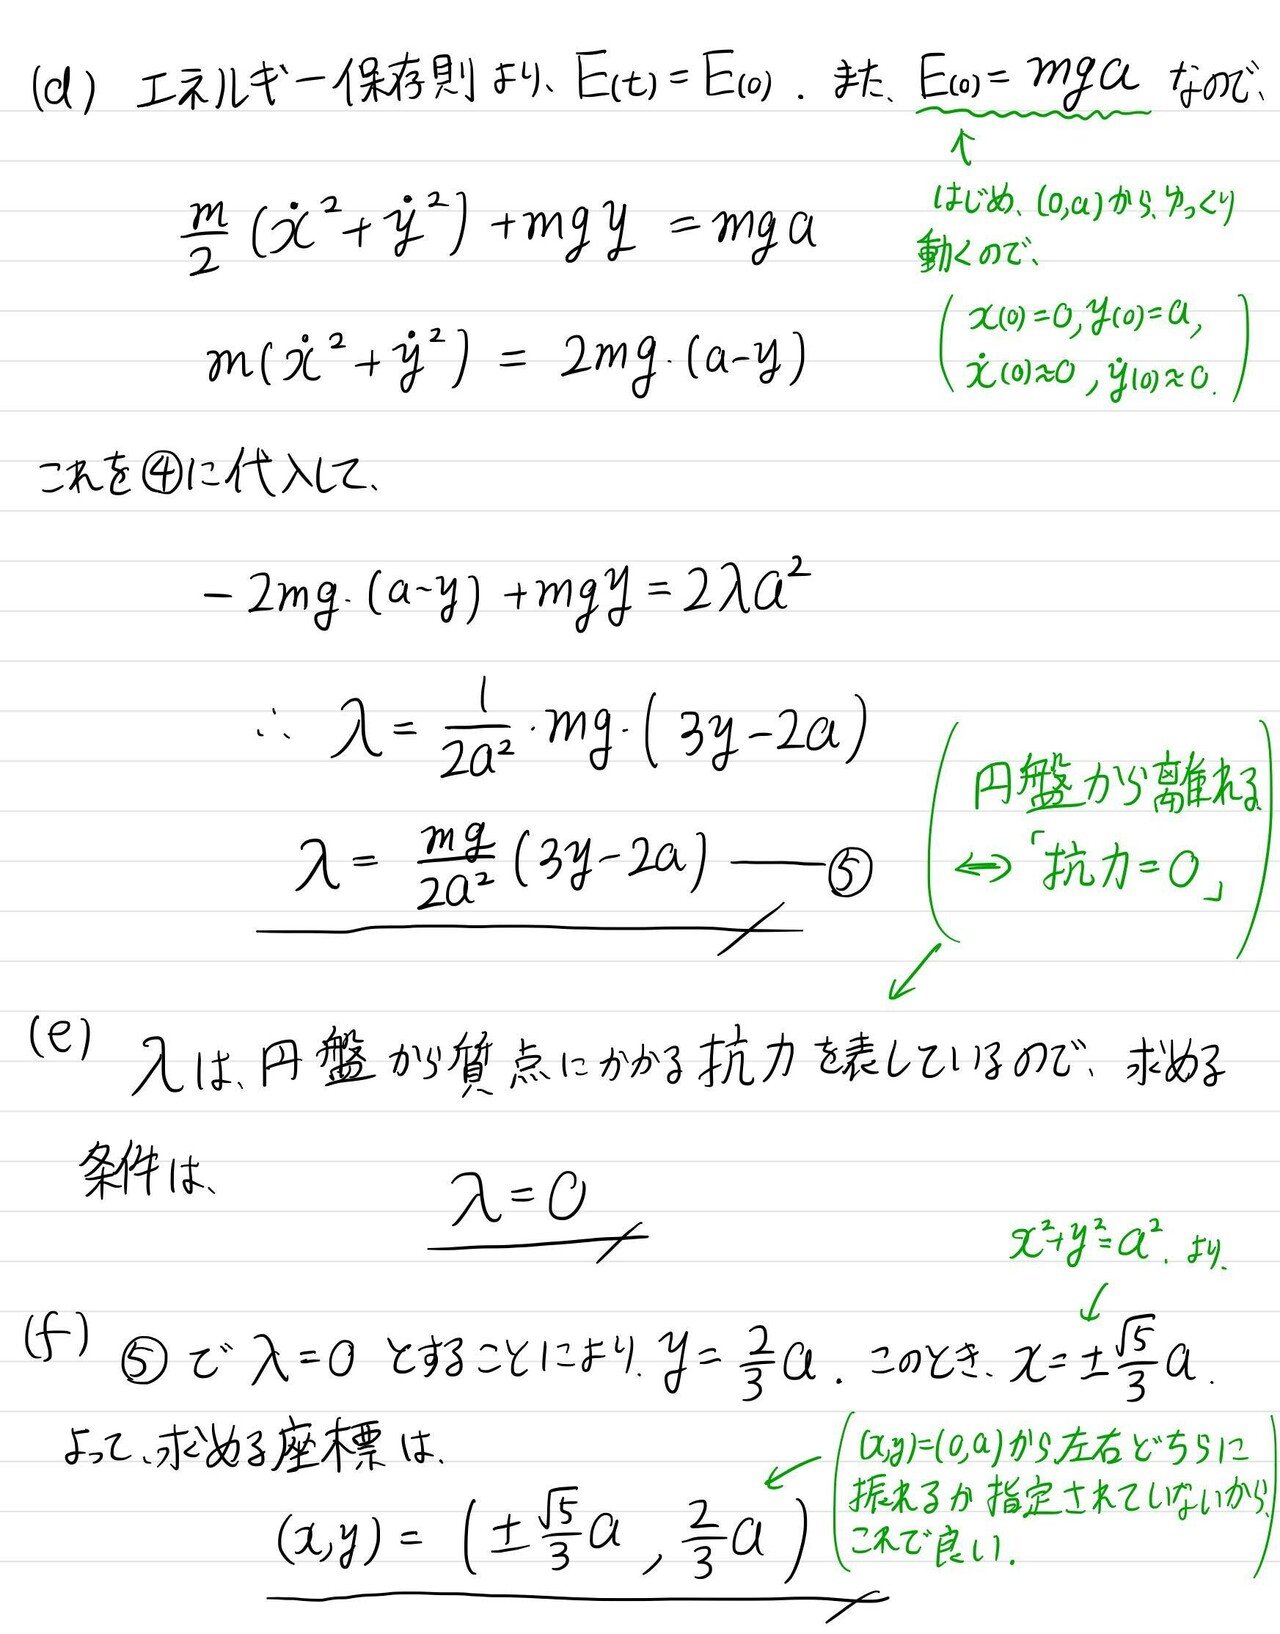 (d) エネルギー保存則より、E(t) = E(0). また、E(0) = mga なので、
↑
はじめ、(0,a)から、ゆっくり
動くので、
m/2 (ẋ² + ẏ²) + mgy = mga
( x(0)=0, y(0)=a,
ẋ(0)≈0, ẏ(0)≈0. )
m(ẋ² + ẏ²) = 2mg・(a-y)
これを④に代入して、
-2mg・(a-y) + mgy = 2λa²
∴ λ = 1/2a² ・mg・( 3y-2a)
λ = mg/2a² (3y-2a) ―― ⑤
( 円盤から離れる
⇔「抗力=0」 )
(e) λは、円盤から質点にかかる抗力を表しているので、求める
条件は、
λ=0
x²+y²=a². より.
(f) ⑤でλ=0 とすることにより. y = 2/3 a. このとき、x = ± √5/3 a.
よって、求める座標は、
( (x,y)=(0,a)から左右どちらに
振れるか指定されていないから、
これで良い. )
(x,y) = ( ± √5/3 a , 2/3 a )